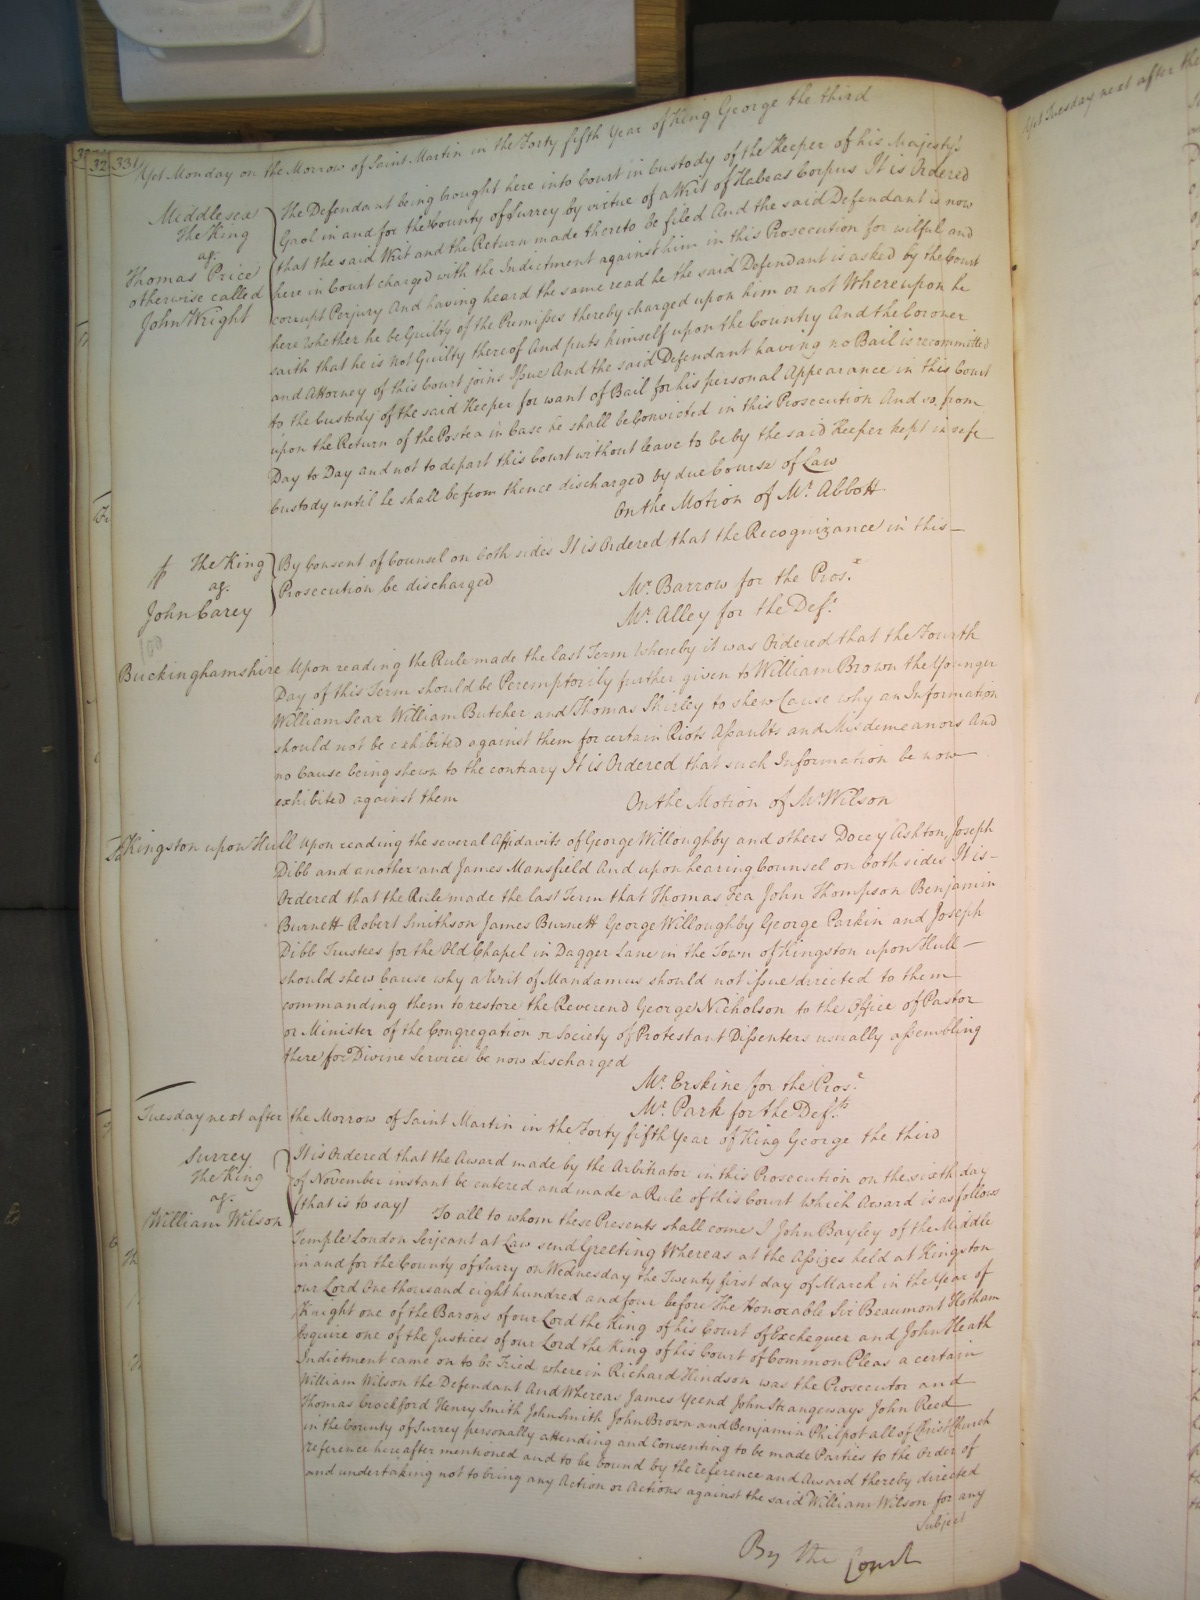 331
Yet Monday on the Morrow of Saint Martin in the Forty fifth Year of King George the third
Middlesex
The King
agt.
Thomas Price
otherwise called
John Wright
The Defendant being brought here into Court in Custody of the Keeper of his Majesty's
Gaol in and for the County of Surrey by virtue of a Writ of Habeas Corpus It is Ordered
that the said Writ and the Return made thereto be filed And the said Defendant is now
here in Court charged with the Indictment against him in this Prosecution for wilful and
corrupt Perjury And having heard the same read he the said Defendant is asked by the Court
here whether he be Guilty of the Premisses thereby charged upon him or not Whereupon he
saith that he is not Guilty thereof And puts himself upon the Country And the Coroner
and Attorney of this Court joins Issue And the said Defendant having no Bail is recommitted
to the Custody of the said Keeper for want of Bail for his personal Appearance in this Court
upon the Return of the Postea in Case he shall be Convicted in this Prosecution And so from
Day to Day and not to depart this Court without leave to be by the said Keeper kept in safe
Custody until he shall be from thence discharged by due Course of Law
On the Motion of Mr. Abbott
The King
agt.
John Carey
By Consent of Counsel on both sides It is Ordered that the Recognizance in this
Prosecution be discharged
Mr. Barrow for the Pros.r
Mr. Alley for the Def.t
Buckinghamshire Upon reading the Rule made the last Term whereby it was Ordered that the Fourth
Day of this Term should be Peremptorily further given to William Brown the Younger
William Sear William Butcher and Thomas Shirley to shew Cause why an Information
should not be exhibited against them for certain Riots Assaults and Misdemeanors And
no Cause being shewn to the contrary It is Ordered that such Information be now
exhibited against them
On the Motion of Mr. Wilson
Kingston upon Hull Upon reading the several Affidavits of George Willoughby and others Docey Ashton, Joseph
Dibb and another and James Mansfield And upon hearing Counsel on both sides It is
Ordered that the Rule made the last Term that Thomas Fea John Thompson Benjamin
Burnett Robert Smithson James Burnett George Willoughby George Parkin and Joseph
Dibb Trustees for the Old Chapel in Dagger Lane in the Town of Kingston upon Hull
should shew Cause why a Writ of Mandamus should not issue directed to them
commanding them to restore the Reverend George Nicholson to the Office of Pastor
or Minister of the Congregation or Society of Protestant Dissenters usually assembling
there for Divine Service be now discharged
Mr. Erskine for the Pros.r
Mr. Park for the Def.ts
Tuesday next after the Morrow of Saint Martin in the Forty fifth Year of King George the third
Surrey
The King
agt.
William Wilson
It is Ordered that the Award made by the Arbitrator in this Prosecution on the sixth day
of November instant be entered and made a Rule of this Court which Award is as follows
(that is to say) To all to whom these Presents shall come I John Bayley of the Middle
Temple London Serjeant at Law send Greeting Whereas at the Assizes held at Kingston
in and for the County of Surry on Wednesday the Twenty first day of March in the Year of
our Lord One thousand eight hundred and four before The Honorable Sir Beaumont Hotham
Knight one of the Barons of our Lord the King of his Court of Exchequer and John Heath
Esquire one of the Justices of our Lord the King of his Court of Common Pleas a certain
Indictment came on to be Tried wherein Richard Hindson was the Prosecutor and
William Wilson the Defendant And Whereas James Yeend John Strangeways John Reed
Thomas Crockford Henry Smith John Smith John Brown and Benjamin Philpot all of Christ Church
in the County of Surrey personally attending and Consenting to be made Parties to the Order of
reference hereafter mentioned and to be bound by the reference and Award thereby directed
and undertaking not to bring any Action or Actions against the said William Wilson for any
Subject
By the Court
Yet Tuesday next after the